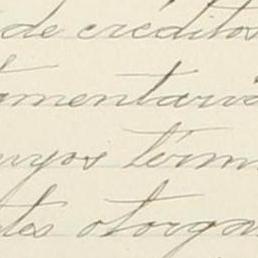 de créditos
tamentaria
cuyos térmi
tes otorga